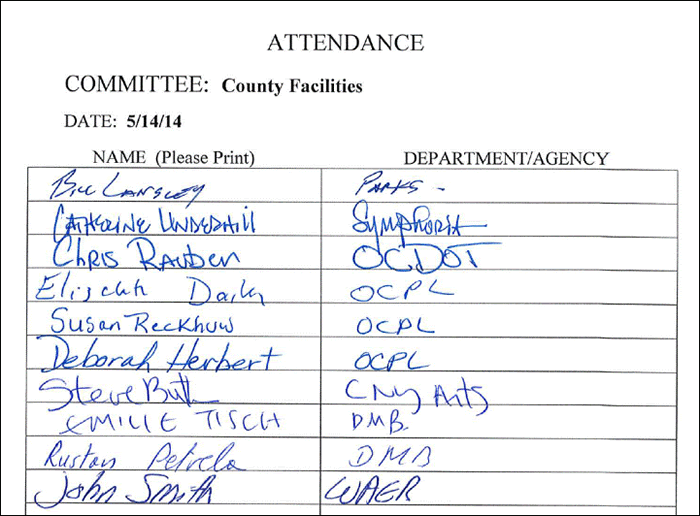 ATTENDANCE
COMMITTEE: County Facilities
DATE: 5/14/14
NAME (Please Print) DEPARTMENT/AGENCY
Bill Lansley Parks -
Catherine Underhill Symphoria
Chris Rauber OCDOT
Daily OCPL
Susan Reckhow OCPL
Deborah Herbert OCPL
Steve Butler CNY Arts
TISCH DMB
Petrela DMB
John Smith WAER